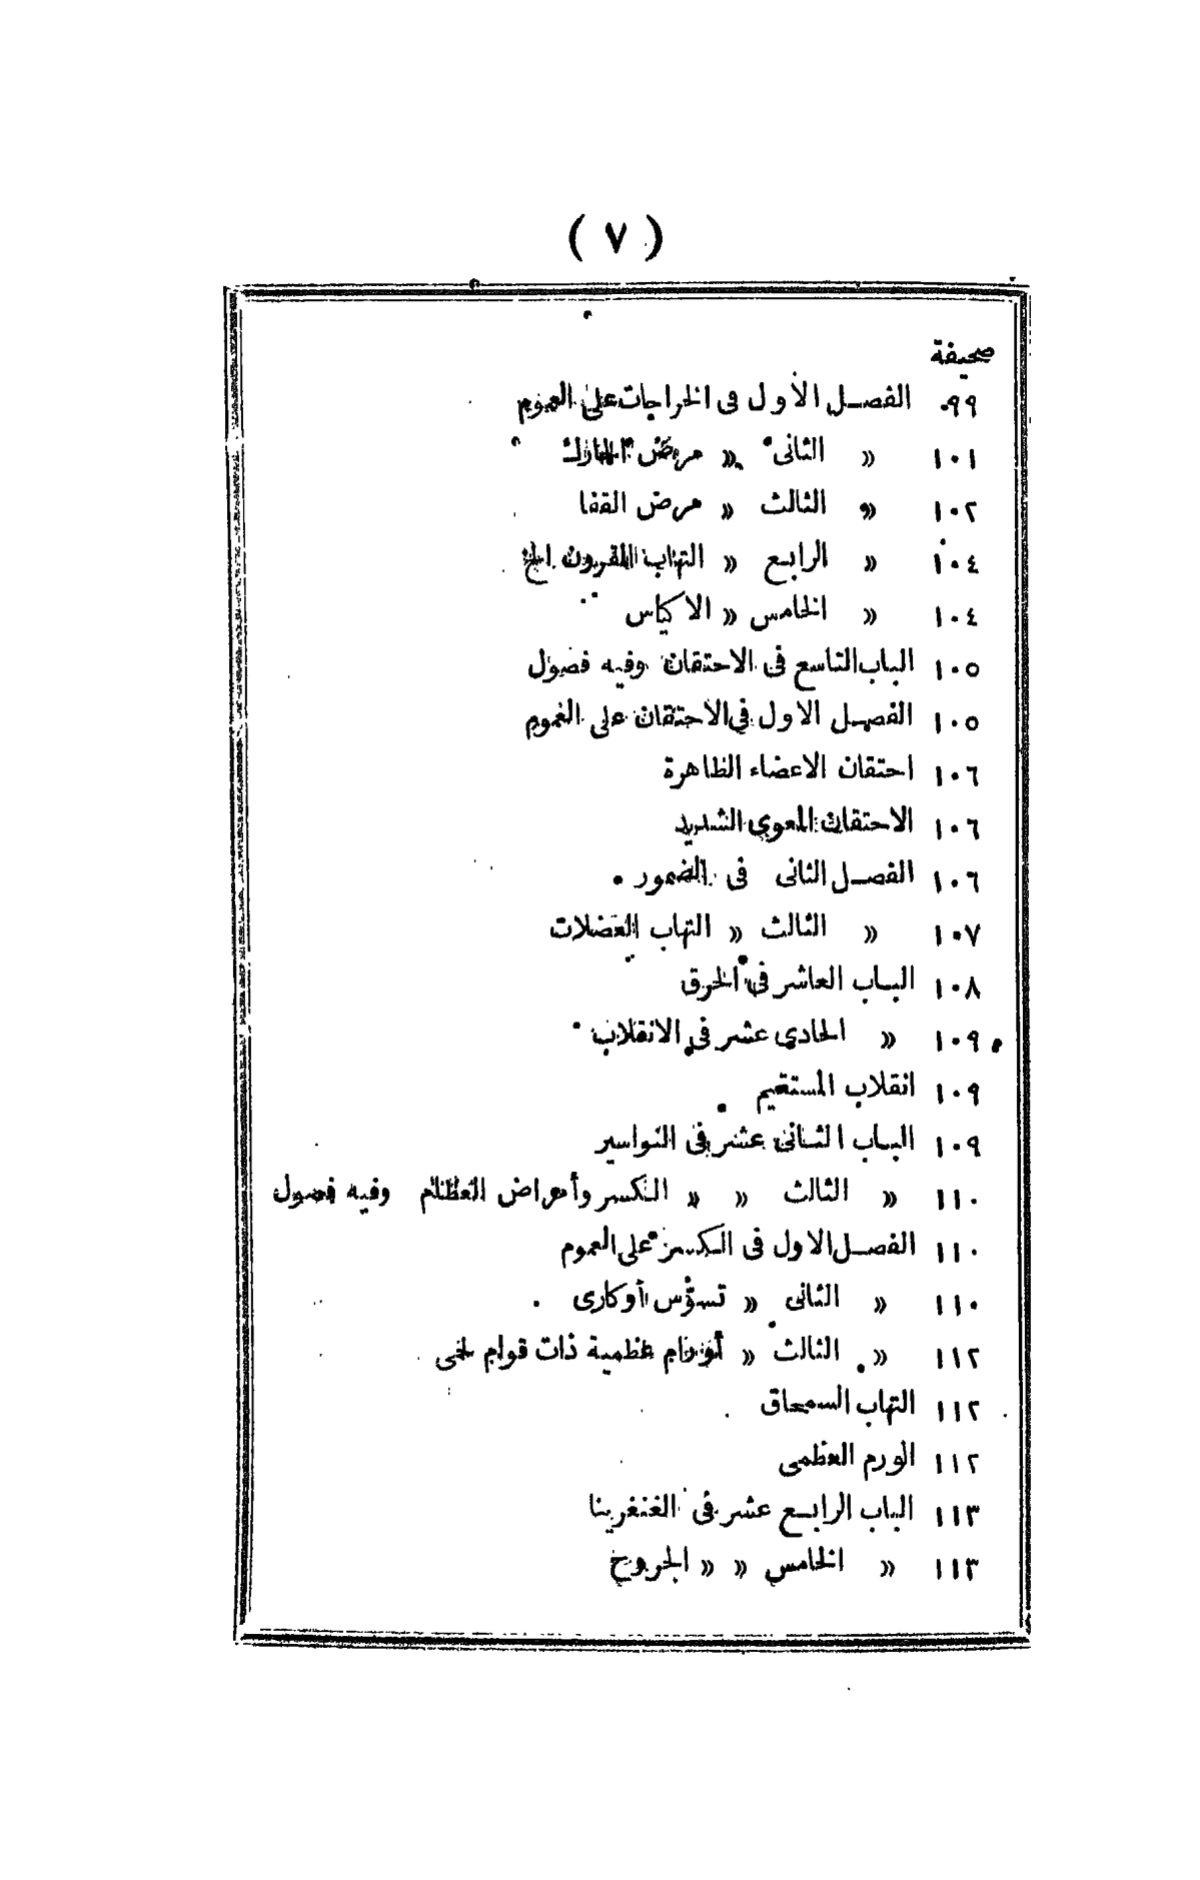 ( ٧ )
صحيفة
٩٩ الفصل الأول فى الخراجات على العموم
١٠١ « الثانى « مرض الحارك
١٠٢ « الثالث « مرض القفا
١٠٤ « الرابع « التهاب القرون الخ
١٠٤ « الخامس « الاكياس
١٠٥ الباب التاسع فى الاحتقان وفيه فصول
١٠٥ الفصل الاول فى الاحتقان على العموم
١٠٦ احتقان الاعضاء الظاهرة
١٠٦ الاحتقان المعوى الشديد
١٠٦ الفصل الثانى فى الضمور
١٠٧ « الثالث « التهاب العضلات
١٠٨ الباب العاشر فى الحرق
١٠٩ « الحادى عشر فى الانقلاب
١٠٩ انقلاب المستقيم
١٠٩ الباب الثانى عشر فى النواسير
١١٠ « الثالث « « الكسر وأمراض العظام وفيه فصول
١١٠ الفصل الاول فى الكسر على العموم
١١٠ « الثانى « تسوّس أوكارى
١١٢ « الثالث « أورام عظمية ذات قوام لحمى
١١٢ التهاب السمحاق
١١٢ الورم العظمى
١١٣ الباب الرابع عشر فى الغنغرينا
١١٣ « الخامس « « الجروح